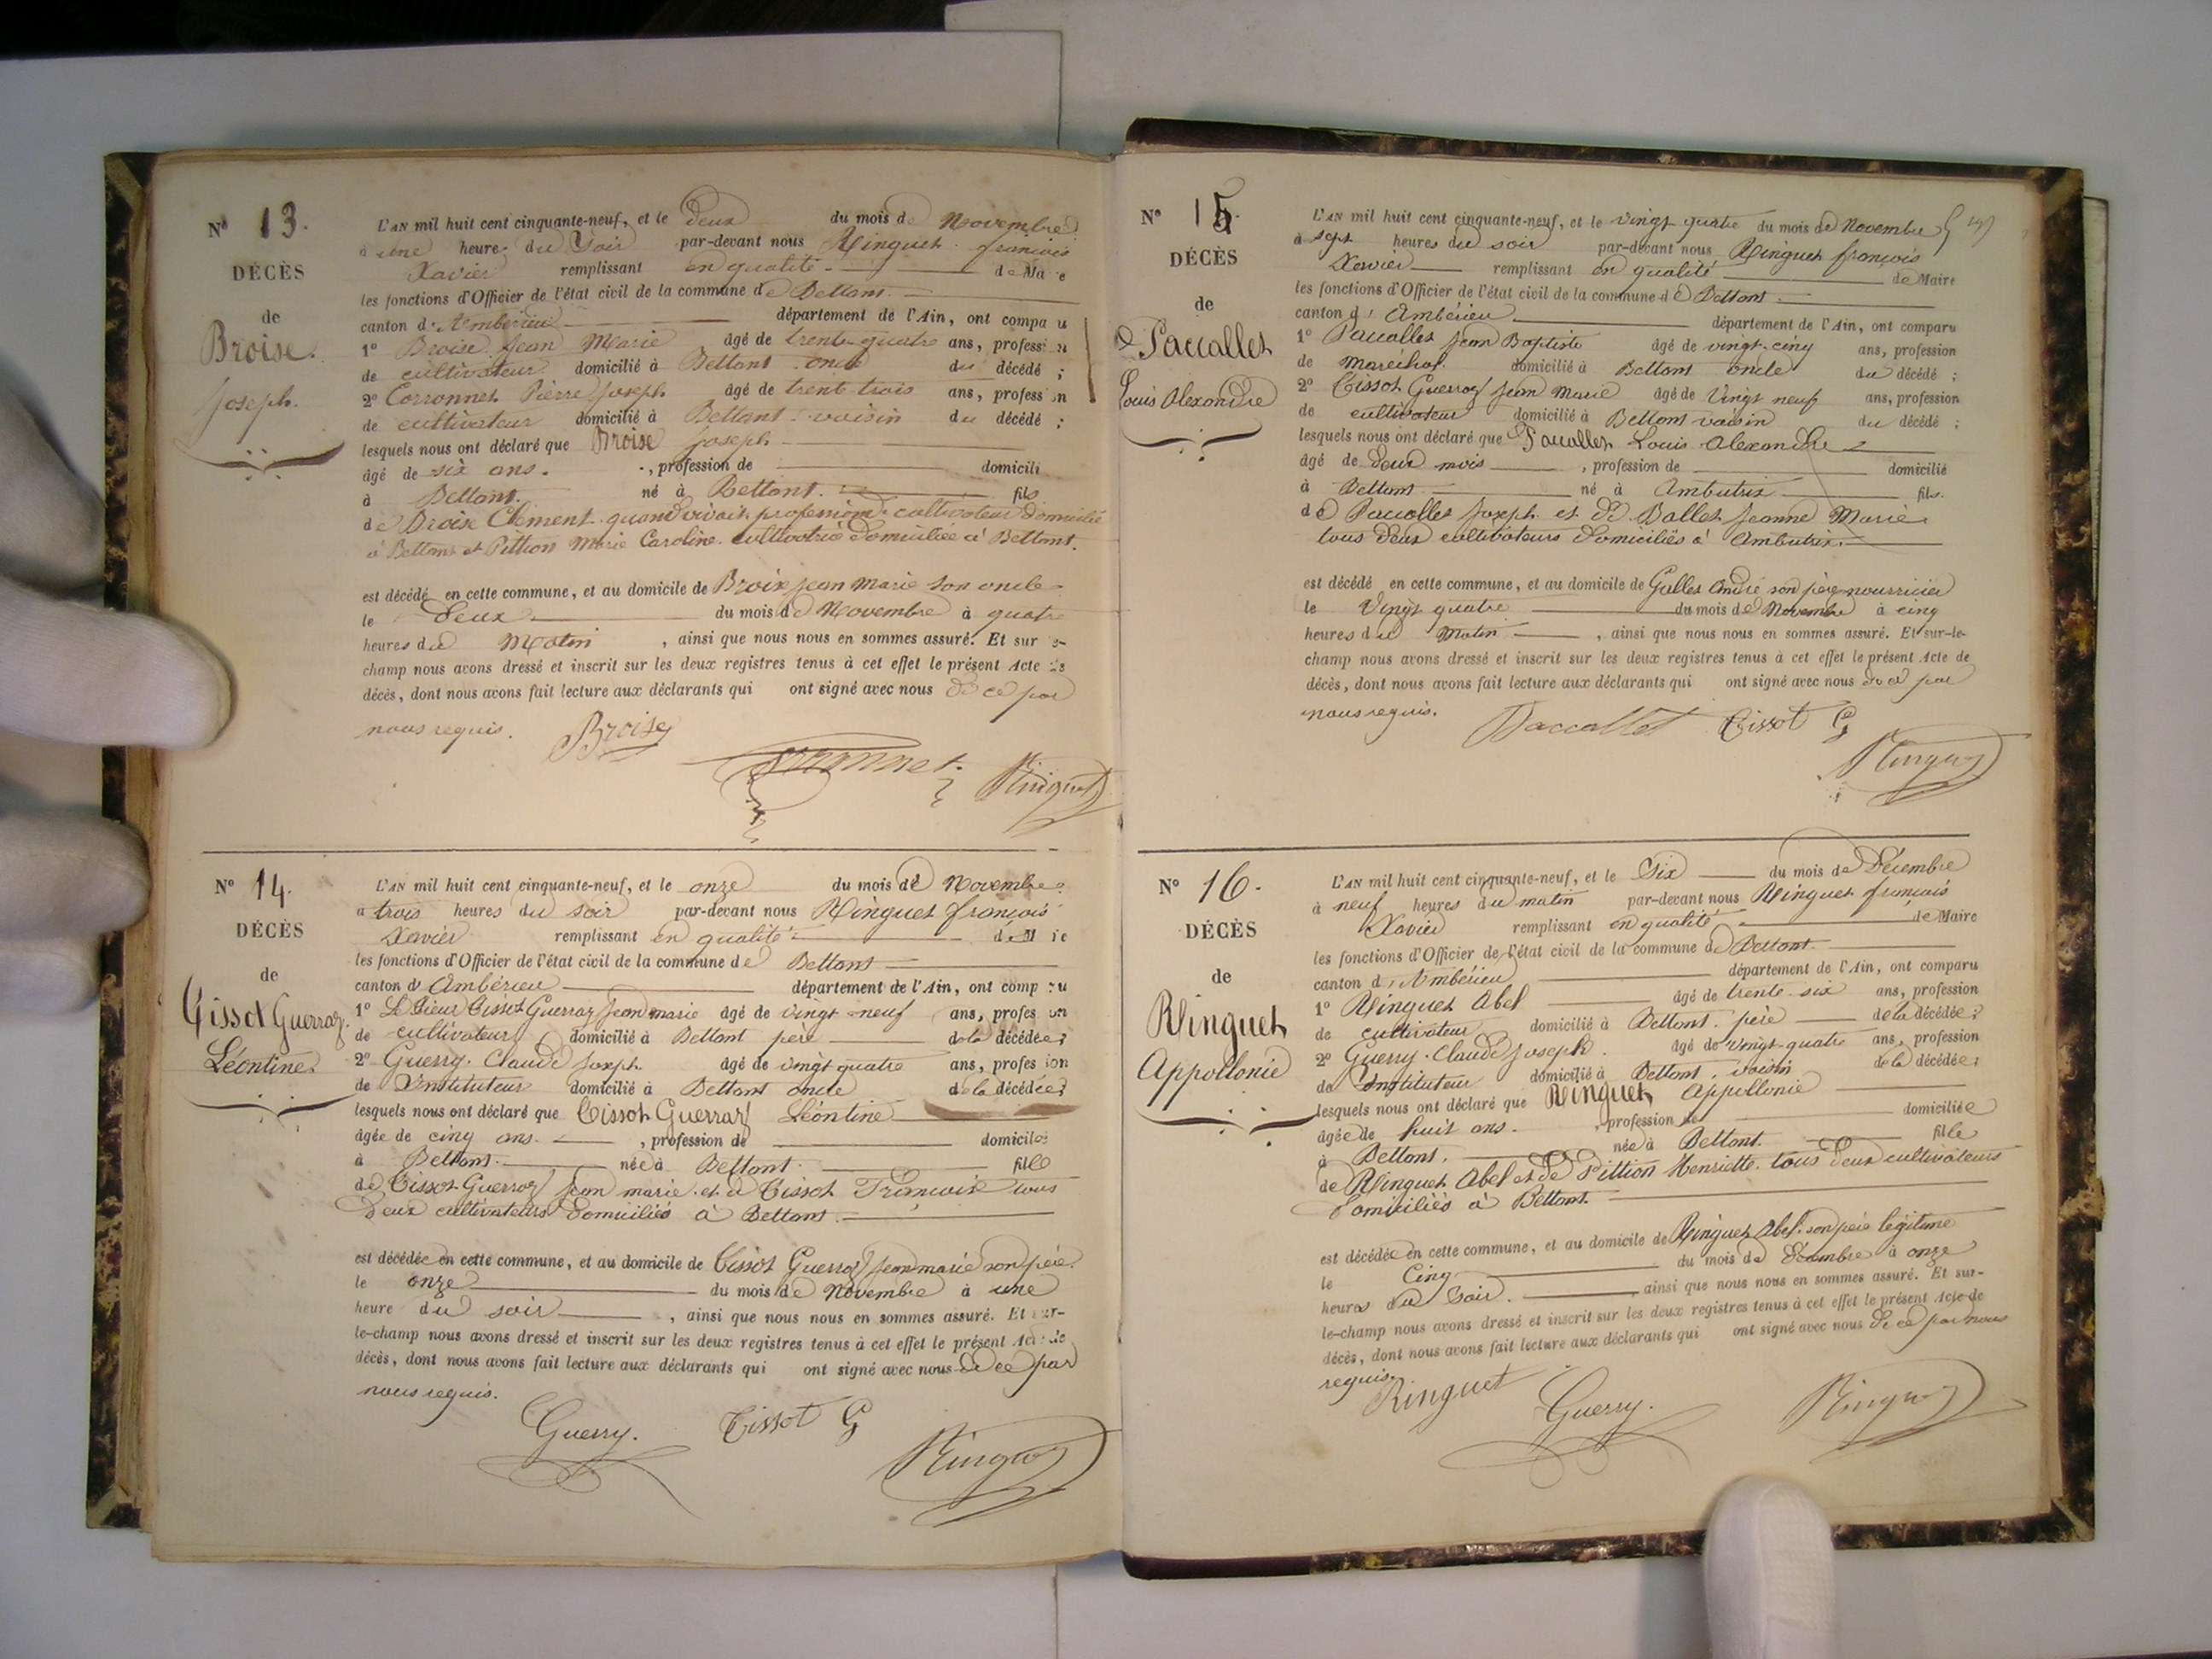 N° 13.
DÉCÈS
de
Broise.
Joseph.
L'AN mil huit cent cinquante-neuf, et le deux du mois de Novembre
à une heure du Soir par-devant nous Ringuet françois
Xavier remplissant en qualité de Ma e
les fonctions d'Officier de l'état civil de la commune de Bettant.
canton d'Ambérieu département de l'Ain, ont compa u
1° Broise Jean Marie âgé de trente-quatre ans, professi n
de cultivateur domicilié à Bettant oncle du décédé ;
2° Corronnet Pierre Joseph âgé de trente trois ans, profess on
de cultivateur domicilié à Bettant. voisin du décédé ;
lesquels nous ont déclaré que Broise Joseph
âgé de six ans. , profession de domicili
à Bettant. né à Bettant. fils
de Broise Clément quand vivait profession. cultivateur domicilié
à Bettant et Pittion Marie Caroline. cultivatrice domiciliée à Bettant.
est décédé en cette commune, et au domicile de Broise Jean Marie son oncle
le deux du mois de Novembre à quatre
heures du Matin , ainsi que nous nous en sommes assuré. Et sur e-
champ nous avons dressé et inscrit sur les deux registres tenus à cet effet le présent Acte de
décès, dont nous avons fait lecture aux déclarants qui ont signé avec nous de ce par
nous requis. Broise
Corronnet. Ringuet
N° 14.
DÉCÈS
de
Tissot Guerraz.
Léontine.
L'AN mil huit cent cinquante-neuf, et le onze du mois de Novembre
à trois heures du soir par-devant nous Ringuet françois
Xavier remplissant en qualité de M ie
les fonctions d'Officier de l'état civil de la commune de Bettant
canton d'Ambérieu département de l'Ain, ont comp ru
1° Le Sieur Tissot Guerraz Jean marie âgé de vingt-neuf ans, profes on
de cultivateur domicilié à Bettant père de la décédée ;
2° Guerry. Claude Joseph. âgé de vingt quatre ans, profes ion
de Instituteur domicilié à Bettant oncle de la décédée ;
lesquels nous ont déclaré que Tissot Guerraz Léontine
âgée de cinq ans. , profession de domicilée
à Bettant. née à Bettant. fille
de Tissot Guerraz Jean marie et de Tissot Françoise tous
deux cultivateurs domiciliés à Bettant.
est décédée en cette commune, et au domicile de Tissot Guerraz Jean marie son père.
le onze du mois de Novembre à une
heure du soir , ainsi que nous nous en sommes assuré. Et sur-
le-champ nous avons dressé et inscrit sur les deux registres tenus à cet effet le présent Acte de
décès, dont nous avons fait lecture aux déclarants qui ont signé avec nous de ce par
nous requis.
Guerry. Tissot G
Ringuet
N° 15.
DÉCÈS
de
Paccallet
Louis Alexandre
L'AN mil huit cent cinquante-neuf, et le vingt quatre du mois de Novembre
à sept heures du soir par-devant nous Ringuet françois
Xavier remplissant en qualité de Maire
les fonctions d'Officier de l'état civil de la commune de Bettant
canton d'Ambérieu département de l'Ain, ont comparu
1° Paccallet Jean Baptiste âgé de vingt-cinq ans, profession
de Maréchal. domicilié à Bettant oncle du décédé ;
2° Tissot Guerraz Jean Marie âgé de Vingt neuf ans, profession
de cultivateur domicilié à Bettant voisin du décédé ;
lesquels nous ont déclaré que Paccallet Louis Alexandre
âgé de deux mois , profession de domicilié
à Bettant né à Ambutrix fils.
de Paccallet Joseph et de Ballet Jeanne Marie
tous deux cultivateurs domiciliés à Ambutrix.
est décédé en cette commune, et au domicile de Gallet André son père nourricier
le Vingt quatre du mois de Novembre à cinq
heures du Matin , ainsi que nous nous en sommes assuré. Et sur-le-
champ nous avons dressé et inscrit sur les deux registres tenus à cet effet le présent Acte de
décès, dont nous avons fait lecture aux déclarants qui ont signé avec nous de ce par
nous requis. Paccallet Tissot G
Ringuet
N° 16.
DÉCÈS
de
Ringuet
Appollonie
L'AN mil huit cent cinquante-neuf, et le Six du mois de Décembre
à neuf heures du matin par-devant nous Ringuet françois
Xavier remplissant en qualité de Maire
les fonctions d'Officier de l'état civil de la commune de Bettant
canton d'Ambérieu département de l'Ain, ont comparu
1° Ringuet Abel âgé de trente-six ans, profession
de cultivateur domicilié à Bettant. père de la décédée ;
2° Guerry. Claude Joseph. âgé de vingt-quatre ans, profession
de Instituteur domicilié à Bettant. voisin de la décédée ;
lesquels nous ont déclaré que Ringuet Appollonie
âgée de huit ans. , profession de domiciliée
à Bettant. née à Bettant. fille
de Ringuet Abel et de Pittion Henriette. tous deux cultivateurs
domiciliés à Bettant.
est décédée en cette commune, et au domicile de Ringuet Abel. son père légitime
le Cinq du mois de Décembre à onze
heures du Soir. , ainsi que nous nous en sommes assuré. Et sur-
le-champ nous avons dressé et inscrit sur les deux registres tenus à cet effet le présent Acte de
décès, dont nous avons fait lecture aux déclarants qui ont signé avec nous de ce par nous
requis.
Ringuet Guerry. Ringuet